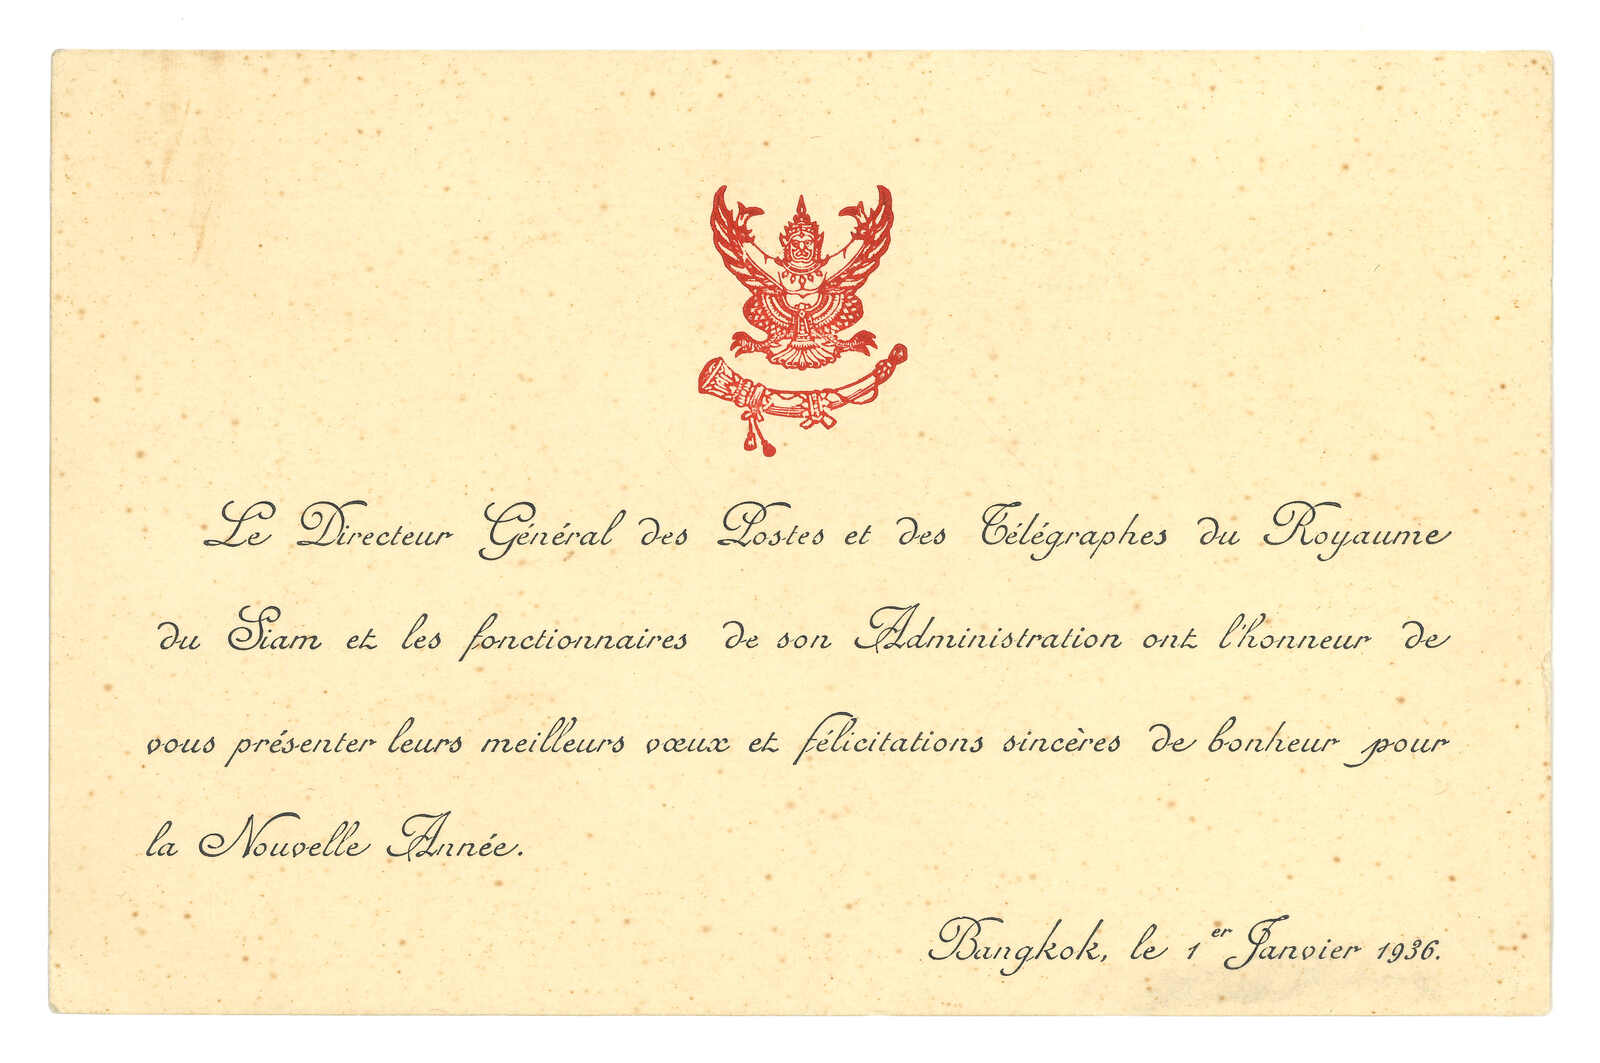 Le Directeur Général des Postes et des Télégraphes du Royaume
du Siam et les fonctionnaires de son Administration ont l'honneur de
vous présenter leurs meilleurs vœux et félicitations sincères de bonheur pour
la Nouvelle Année.
Bangkok, le 1er Janvier 1936.